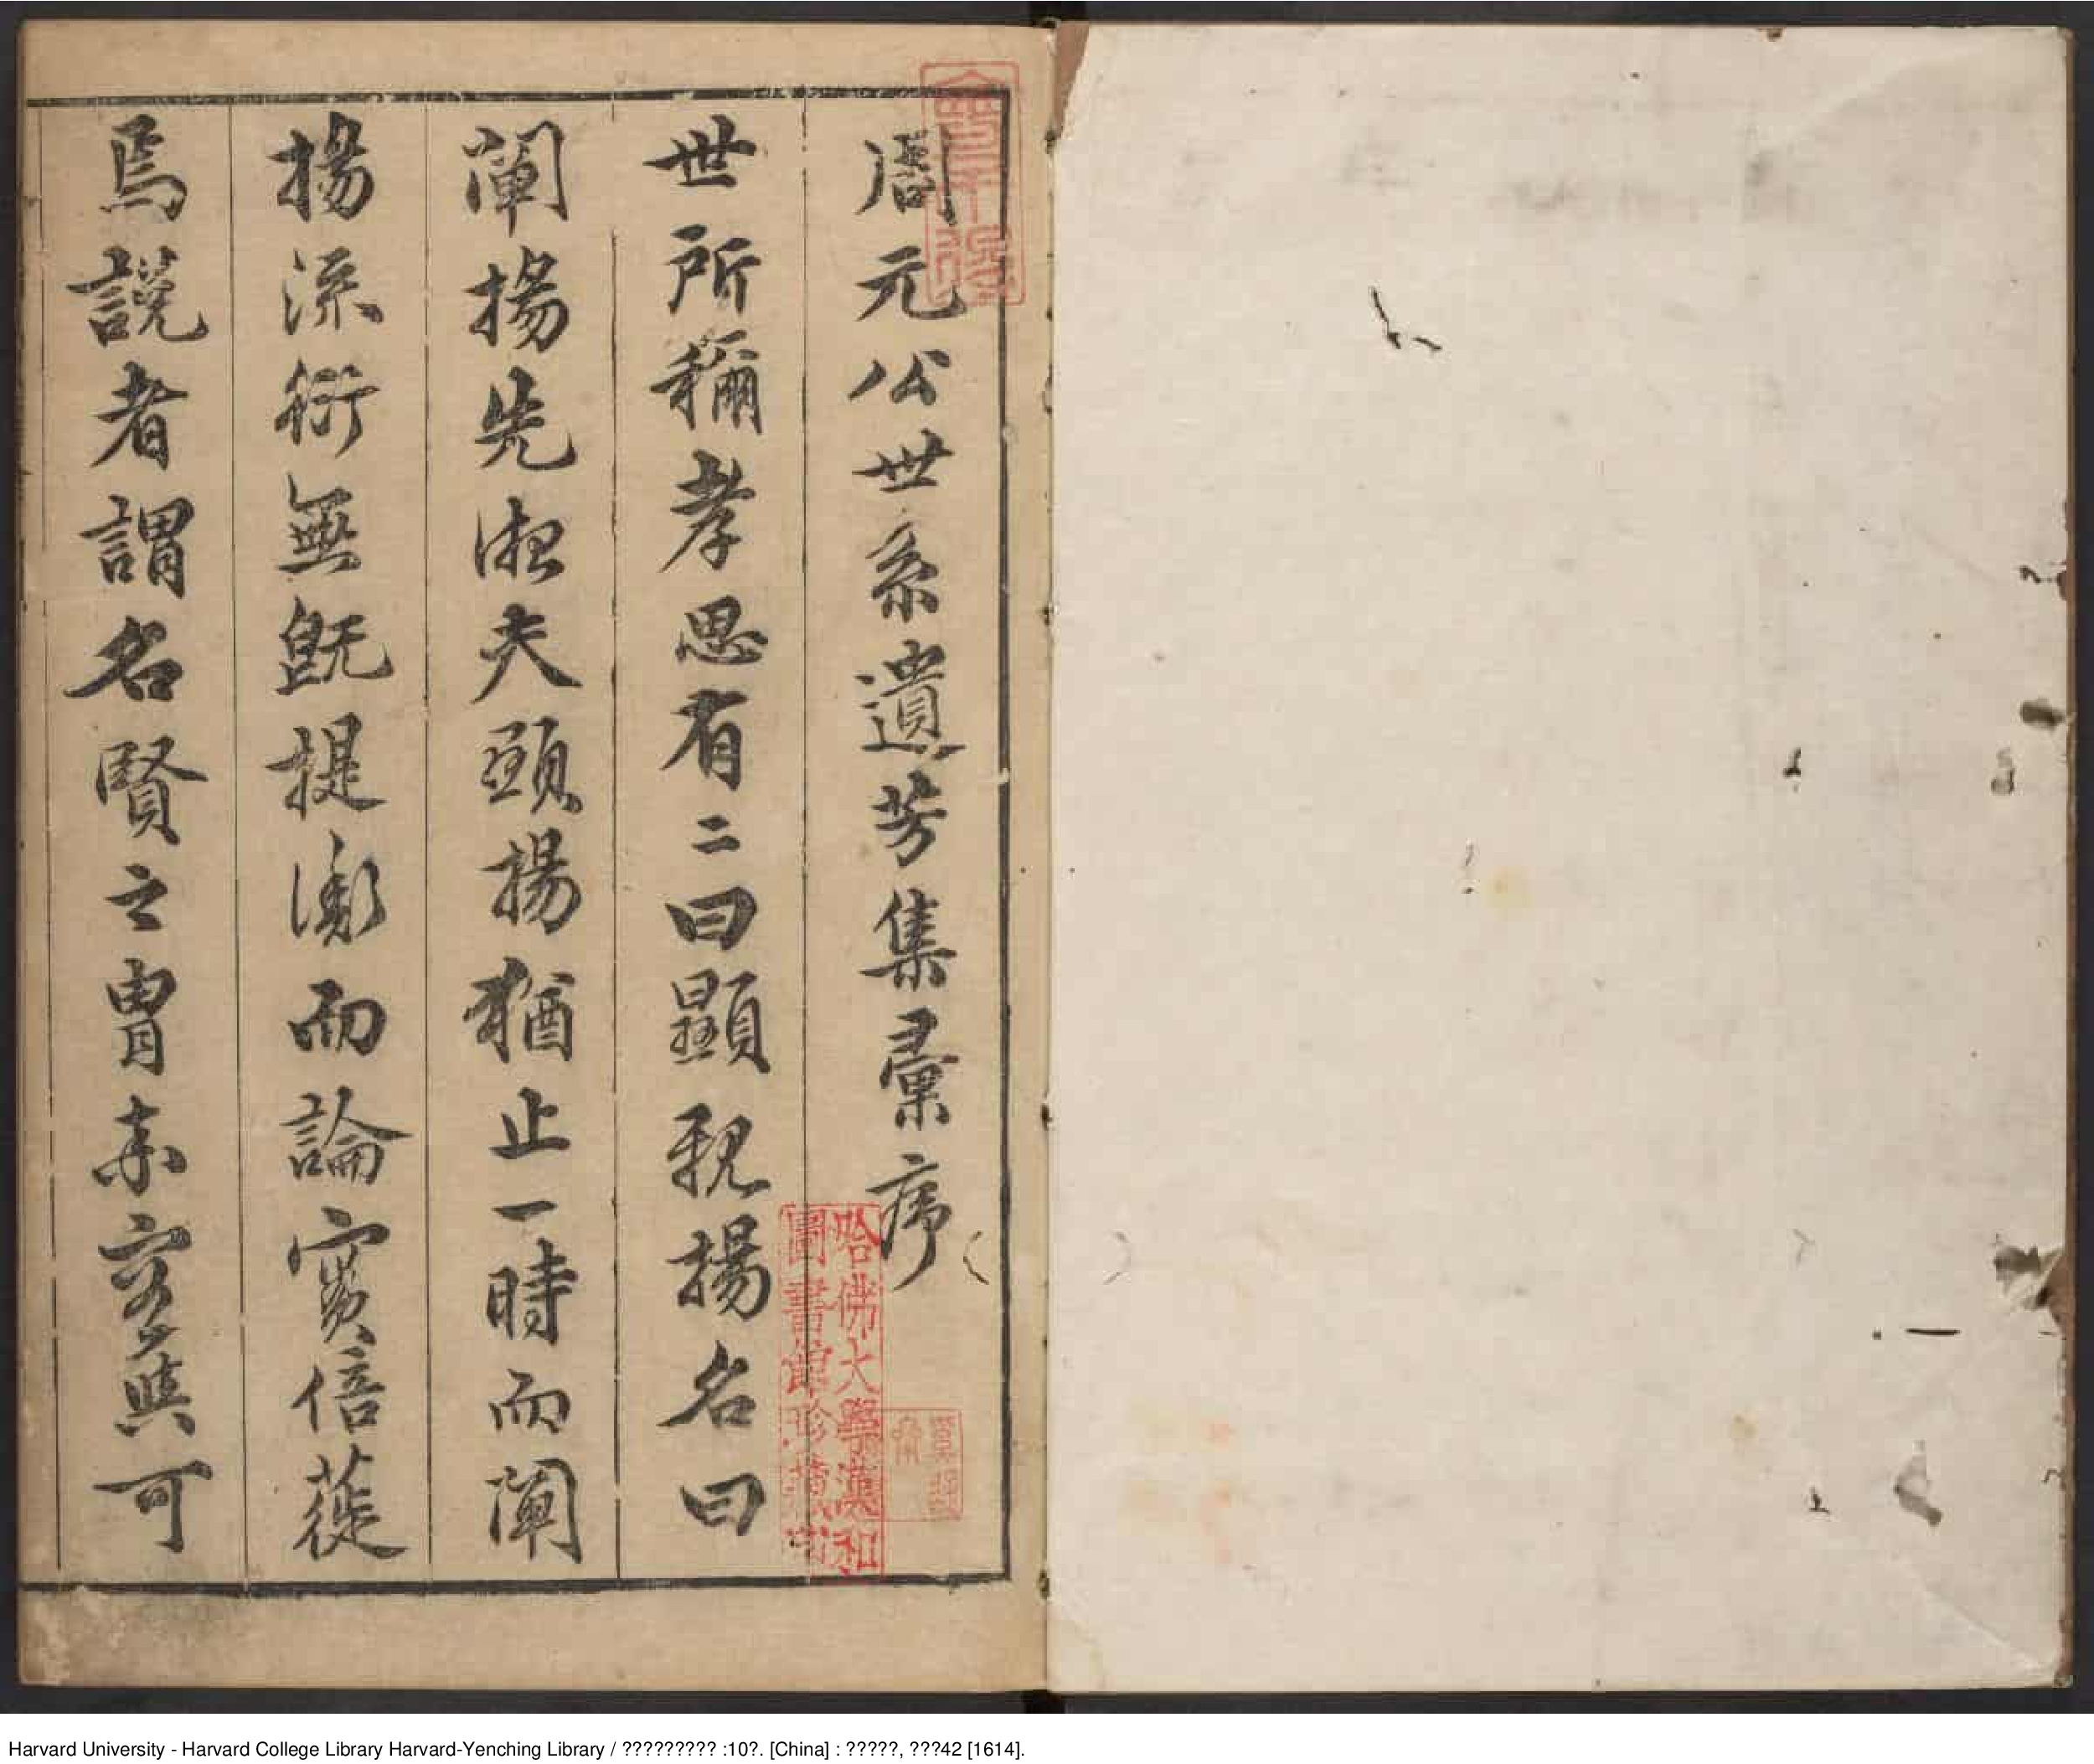 周元公世系遺芳集彙序
世所稱孝思有二曰顯親揚名曰
闡揚先淑夫顯揚猶止一時而闡
揚流衍無旣提衡而論實倍蓰
焉說者謂名賢之胄未容輿可
哈佛大學漢和
圖書館珍藏印
Harvard University - Harvard College Library Harvard-Yenching Library / ????????? :10?. [China] : ?????, ???42 [1614].